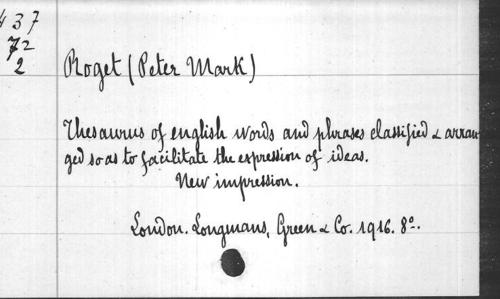 437
72
2
Roget (Peter Mark)
Thesaurus of english words and phrases classified & arran
ged so as to facilitate the expression of ideas.
New impression.
London. Longmans, Green & Co. 1916. 8º.